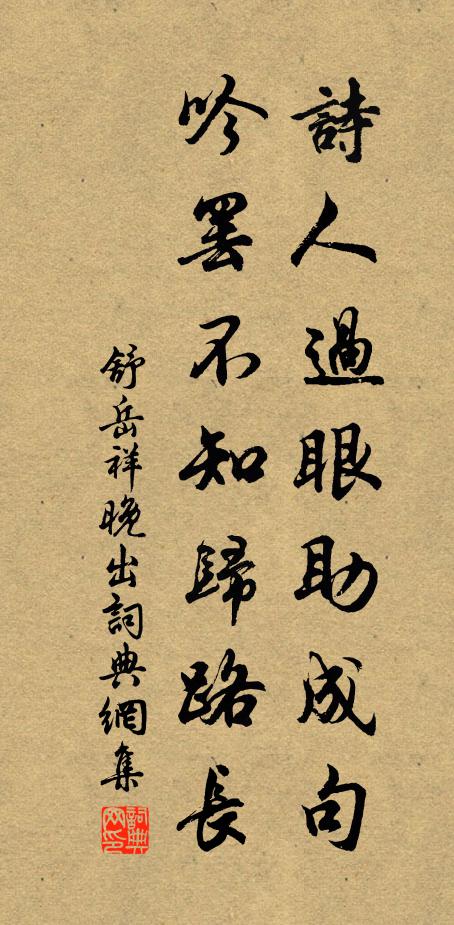 詩人過眼助成句
吟罷不知歸路長
舒岳祥晚出詞典網集
詞典网印